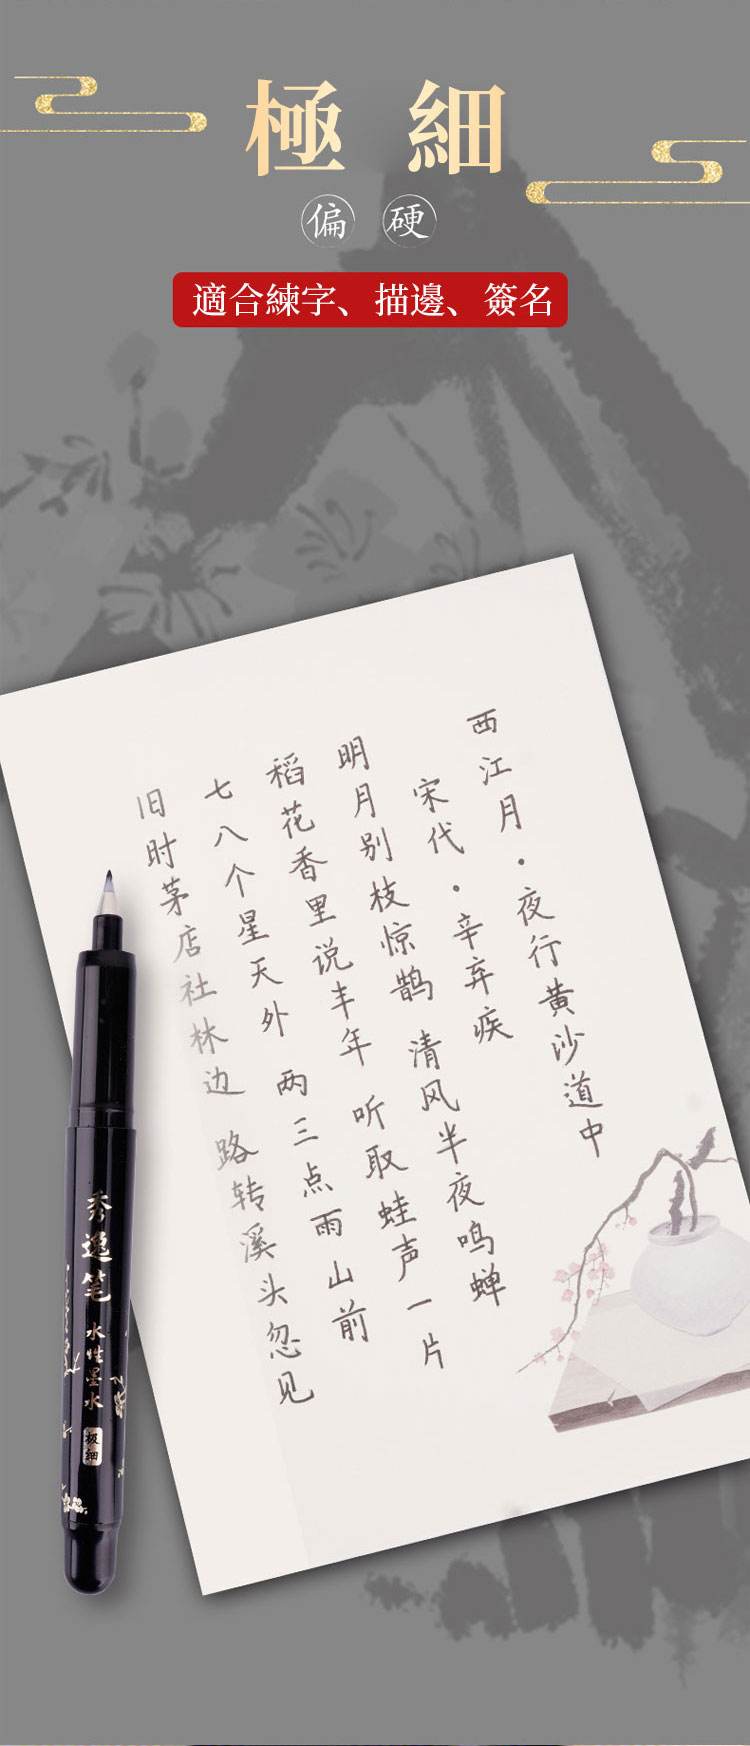 極細
偏硬
適合練字、描邊、簽名
西江月·夜行黄沙道中
宋代·辛弃疾
明月别枝惊鹊 清风半夜鸣蝉
稻花香里说丰年 听取蛙声一片
七八个星天外 两三点雨山前
旧时茅店社林边 路转溪头忽见
秀逸笔
水性墨水
极细